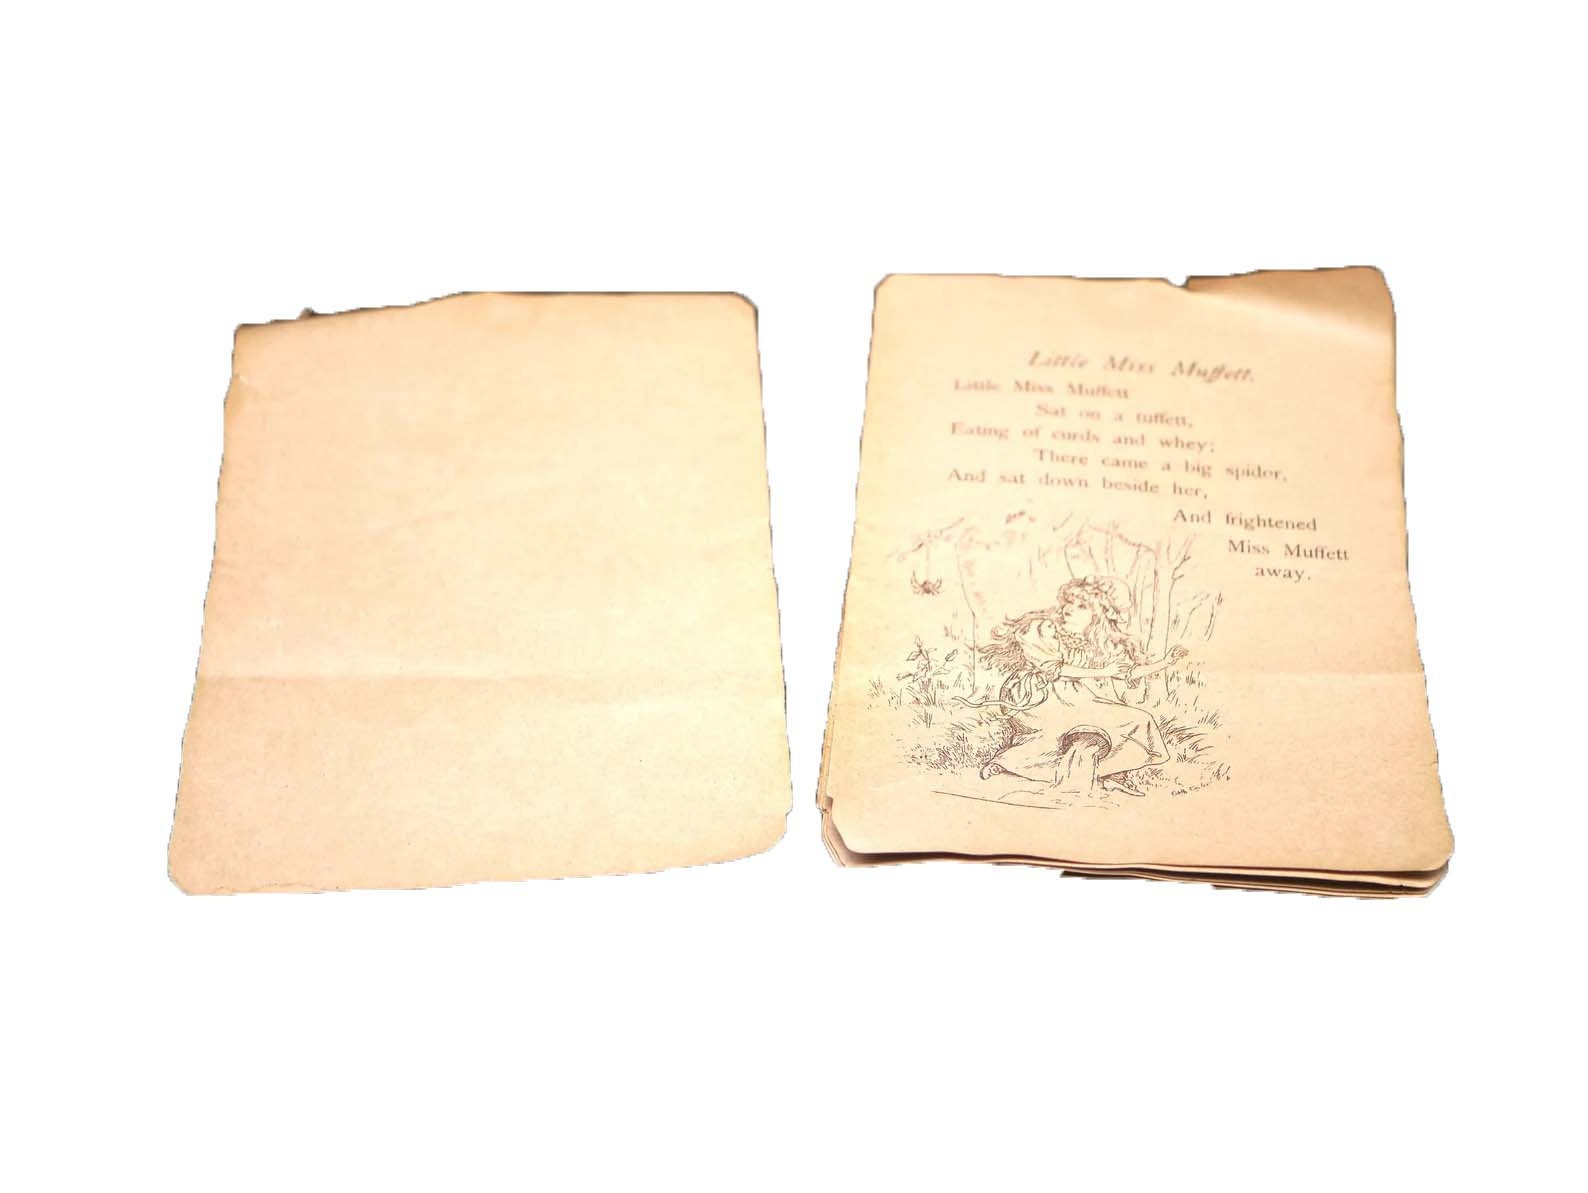 Little Miss Muffett.
Little Miss Muffett
Sat on a tuffett,
Eating of curds and whey;
There came a big spidor,
And sat down beside her,
And frightened
Miss Muffett
away.